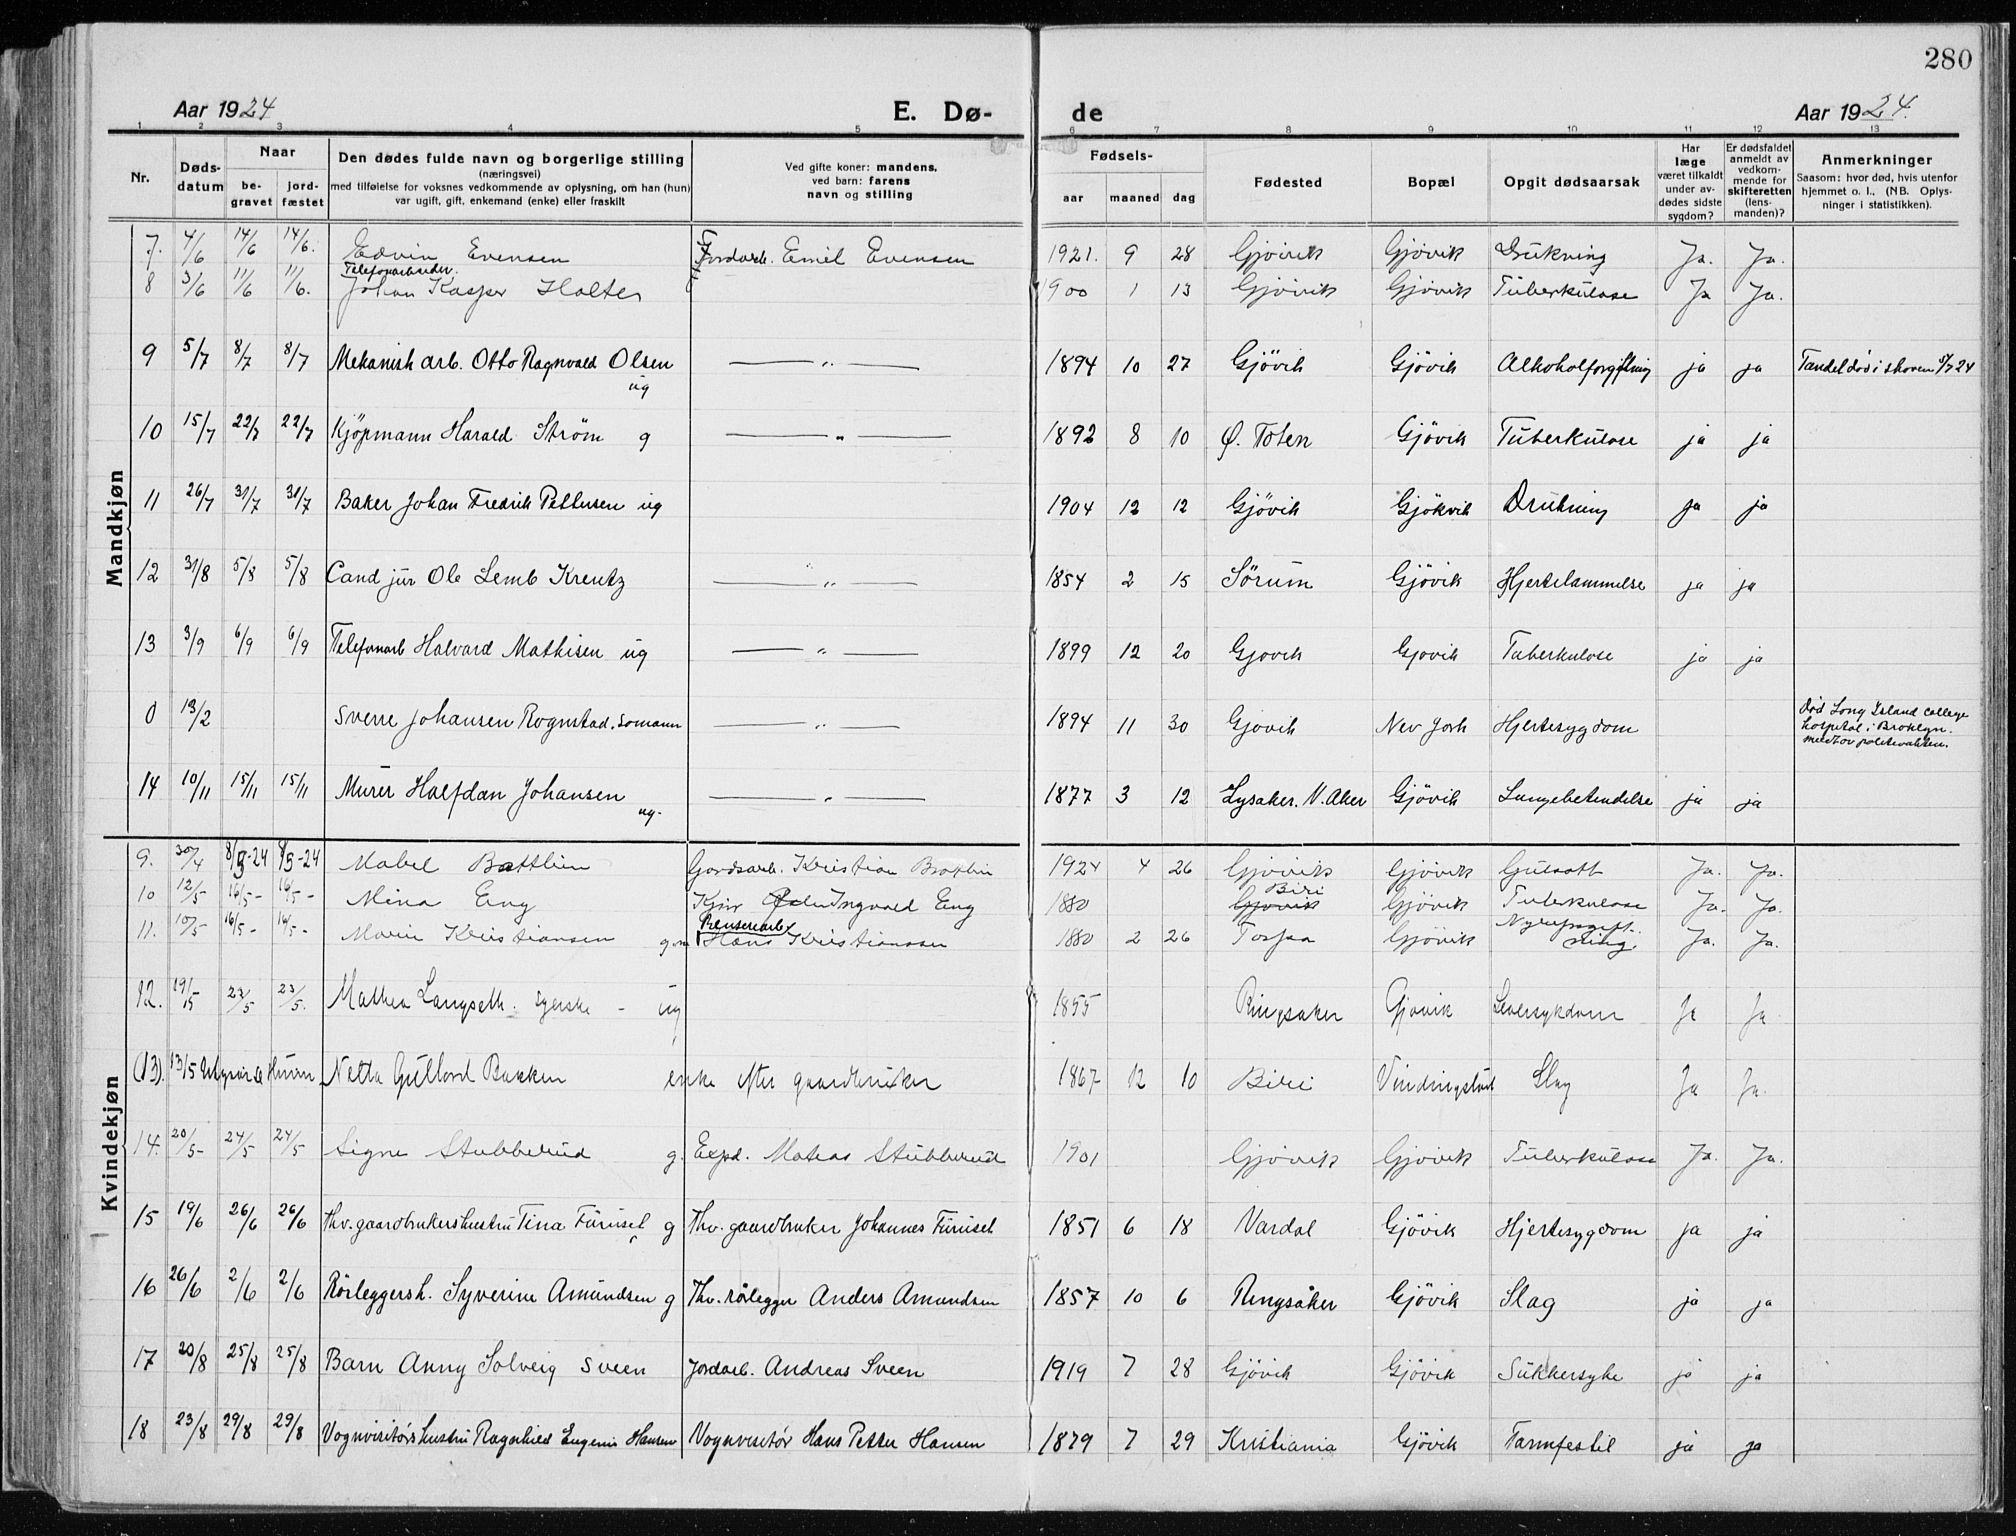 280
Aar 1924 E. Dø- de Aar 1924.
1 2 3 4 5 6 7 8 9 10 11 12 13
Nr. Døds-datum Naar be-gravet jord-fæstet Den dødes fulde navn og borgerlige stilling (næringsvei) med tilføielse for voksnes vedkommende av oplysning, om han (hun) var ugift, gift, enkemand (enke) eller fraskilt Ved gifte koner: mandens, ved barn: farens navn og stilling Fødsels- aar maaned dag Fødested Bopæl Opgit dødsaarsak Har læge været tilkaldt under av-dødes sidste sygdom? Er dødsfaldet anmeldt av vedkom-mende for skifteretten (lens-manden)? Anmerkninger Saasom: hvor død, hvis utenfor hjemmet o. l., (NB. Oplys-ninger i statistikken).
Mandkjøn
7. 4/6 14/6 14/6. Edvin Evensen Jordarb. Emil Evensen 1921. 9 28 Gjøvik Gjøvik Drukning Ja. Ja.
Telefonarbeider.
8 3/6 11/6 11/6. Johan Kasper Holter 1900 1 13 Gjøvik Gjøvik Tuberkulose Ja Ja.
9 5/7 8/7 8/7 Mekanisk arb. Otto Ragnvald Olsen ug — " — 1894 10 27 Gjövik Gjövik Alkoholforgiftning ja ja i skoven 5/7 24
10 15/7 22/7 22/7 Kjøpmann Harald Strøm g — " — 1892 8 10 Ø. Toten Gjövik Tuberkulose ja ja
11 26/7 31/7 31/7 Baker Johan Fredrik Pettersen ug 1904 12 12 Gjövik Gjökvik Drukning ja ja
12 31/8 5/8 5/8 Cand jur Ole Lemb Kreutz — " — 1854 2 15 Sörum Gjövik Hjertelammelse ja ja
13 3/9 6/9 6/9 Telefonarb Halvard Mathisen ug — " — 1899 12 20 Gjovik Gjovik Tuberkulose ja ja
0 13/2 Sverre Johansen Rognstad. Somann — " — 1894 11 30 Gjovik New Jork Hjertesygdom Død Long Island College hospital i Broklyn.
14 10/11 15/11 15/11 Murer Halfdan Johansen ug. — " — 1877 3 12 Lysaker. V. Aker Gjövik Lungebetendelse ja ja
Kvindekjøn
9. 30/4 8/5-24 8/5-24 Mabel Bratthien Gardsarb. Kristian Bratlien 1924 4 26 Gjövik Gjövik Gulsott Ja. Ja.
10 12/5 16/5- 16/5- Mina Eng Ingvald Eng 1880 Biri Gjøvik Gjøvik Tuberkulose Ja. Ja.
11. 10/5 16/5- 16/5- Marie Kristiansen g.m Hans Kristiansen 1880 2 26 Torpa Gjövik Ja. Ja.
12. 19/5 23/5 23/5. Mathea Langseth. Syerske - ug 1855 Ringsaker Gjøvik Leversykdom Ja Ja
(13). 13/5 Hunn Netta Gullord Bakken enke efter gaardbruker 1867 12 10 Biri Slag Ja Ja.
14. 20/5- 24/5 24/5 Signe Stubberud g. Exped. Mateas Stubberud 1901 Gjövik Gjövik Tuberkulose Ja. Ja.
15 19/6 26/6 26/6 Fhv. gaardbrukershustru Tina Furuset g Fhv. gaardbruker Johannes Furuset 1851 6 18 Vardal Gjövik Hjertesygdom ja ja
16 26/6 2/6 2/6 Rörleggersh. Syverine Amundsen g Fhv. rörlegger Anders Amundsen 1857 10 6 Ringsåker Gjövik Slag ja ja
17 20/8 25/8 25/8 Barn Anny Solveig Sveen Jordarb. Andreas Sveen 1919 7 28 Gjövik Gjövik Sukkersyke ja ja
18 23/8 29/8 29/8 Vognvisitørs hustru Ragnhild Eugenie Hansen Vognvisitør Hans Petter Hansen 1879 7 29 Kristiania Gjövik Tarmfestil ja ja